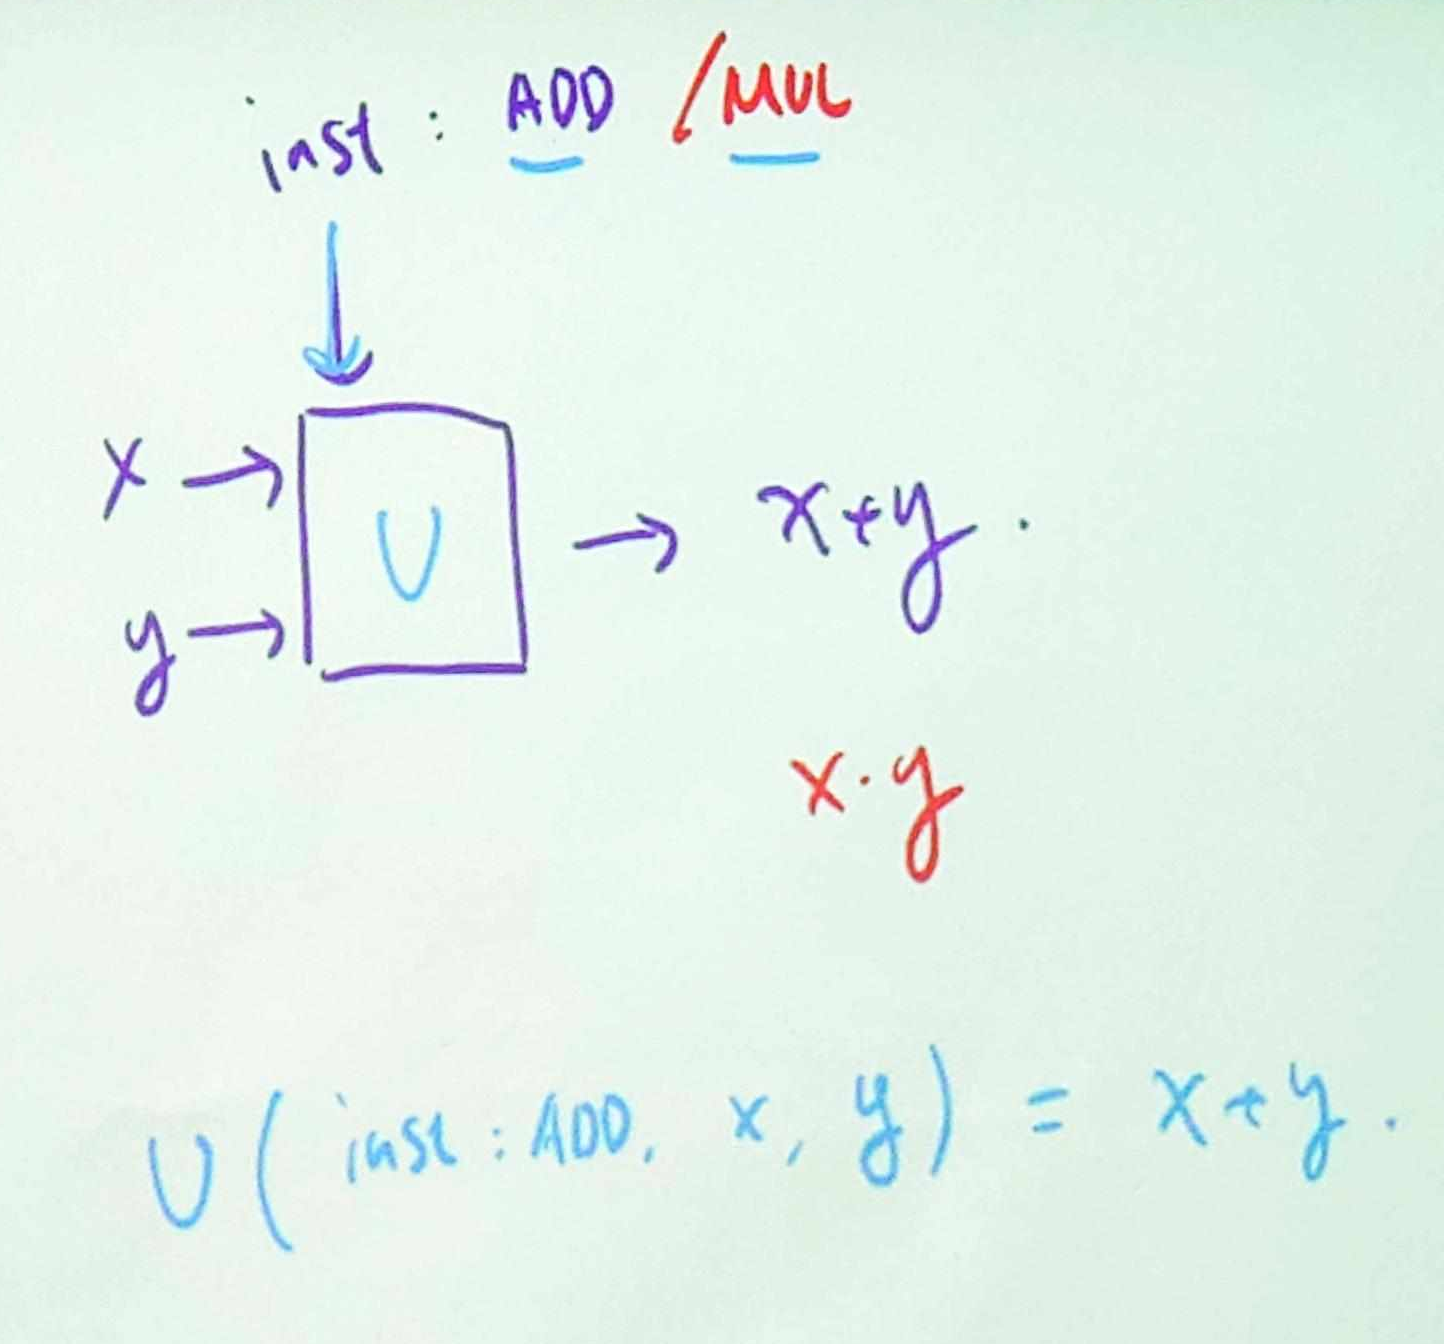 inst : ADD / MUL
x → U → x+y.
y →
x·y
U( inst : ADD, x, y) = x+y.